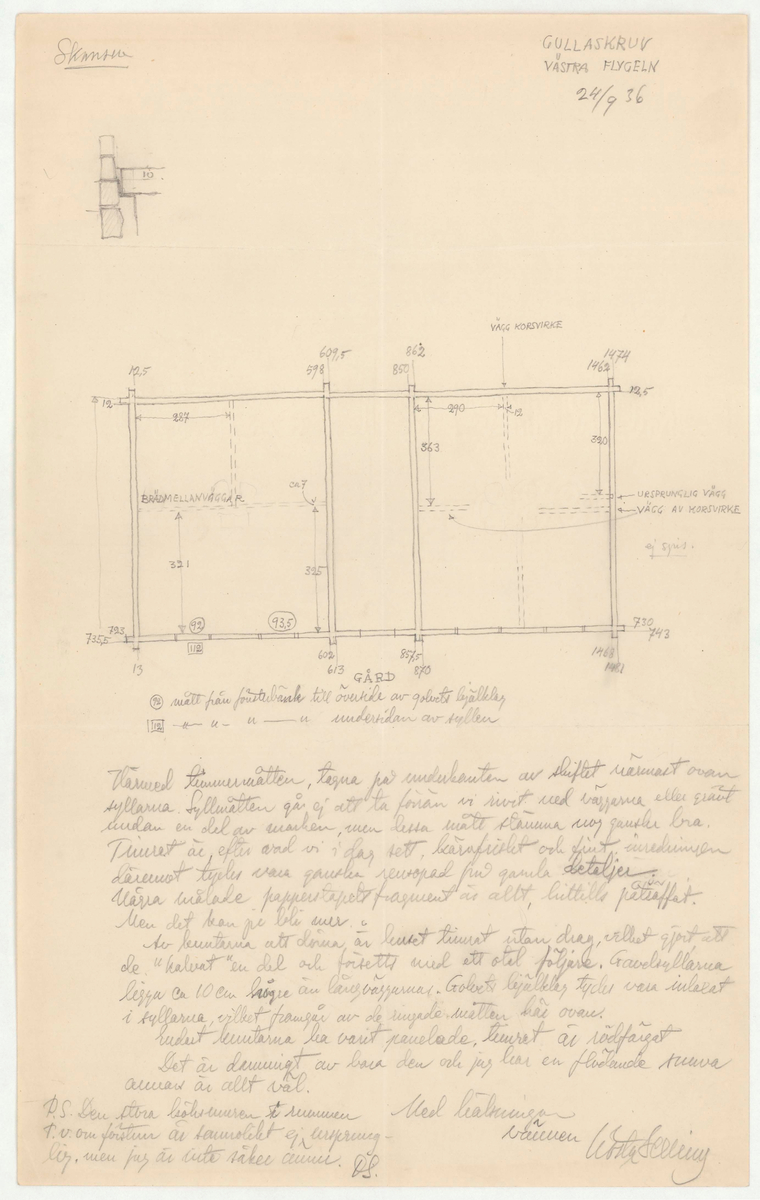 Skansen
GULLASKRUV
VÄSTRA FLYGELN
24/9 36
10
VÄGG KORSVIRKE
12,5
609,5
598
862
850
1474
1462
12
287
290
12
12,5
363
320
BRÄDMELLANVÄGGAR
ca 7
URSPRUNGLIG VÄGG
VÄGG AV KORSVIRKE
ej
321
325
92
93,5
112
723
735,5
730
743
13
602
613
857,5
870
1468
1481
GÅRD
92 mått från fönsterbänk till översida av golvets bjälklag
112 -"- "- " — " undersidan av syllen
Härmed timmermåtten, tagna på underkanten av skiftet närmast ovan
syllarna. Syllmåtten går ej att ta förrän vi rivit ned väggarna eller grävt
undan en del av marken, men dessa mått stämma nog ganska bra.
Timret är, efter vad vi i dag sett, kärnfriskt och fint, inredningen
däremot tycks vara ganska renspad på gamla detaljer.
Några målade papperstapetsfragment är allt, hittills påträffat.
Men det kan ju bli mer.
Av knutarna att döma, är huset timrat utan drag, vilket gjort att
de "halvat" en del och försetts med att otal följare. Gavelsyllarna
ligga ca 10 cm högre än långväggarnas. Golvets bjälklag tycks vara inlaxat
i syllarna, vilket framgår av de ringade måtten här ovan.
Endast knutarna ha varit panelade, timret är rödfärgat
Det är dammigt av bara den och jag har en flödande snuva
annars är allt väl.
P.S. Den stora köksmuren i rummen
t.v. om förstun är sannolikt ej ursprung-
lig, men jag är inte säker ännu. DS.
Med hälsningar
vännen Gösta Selling